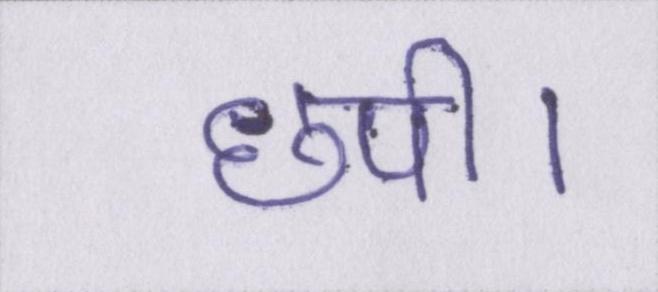 छपी।